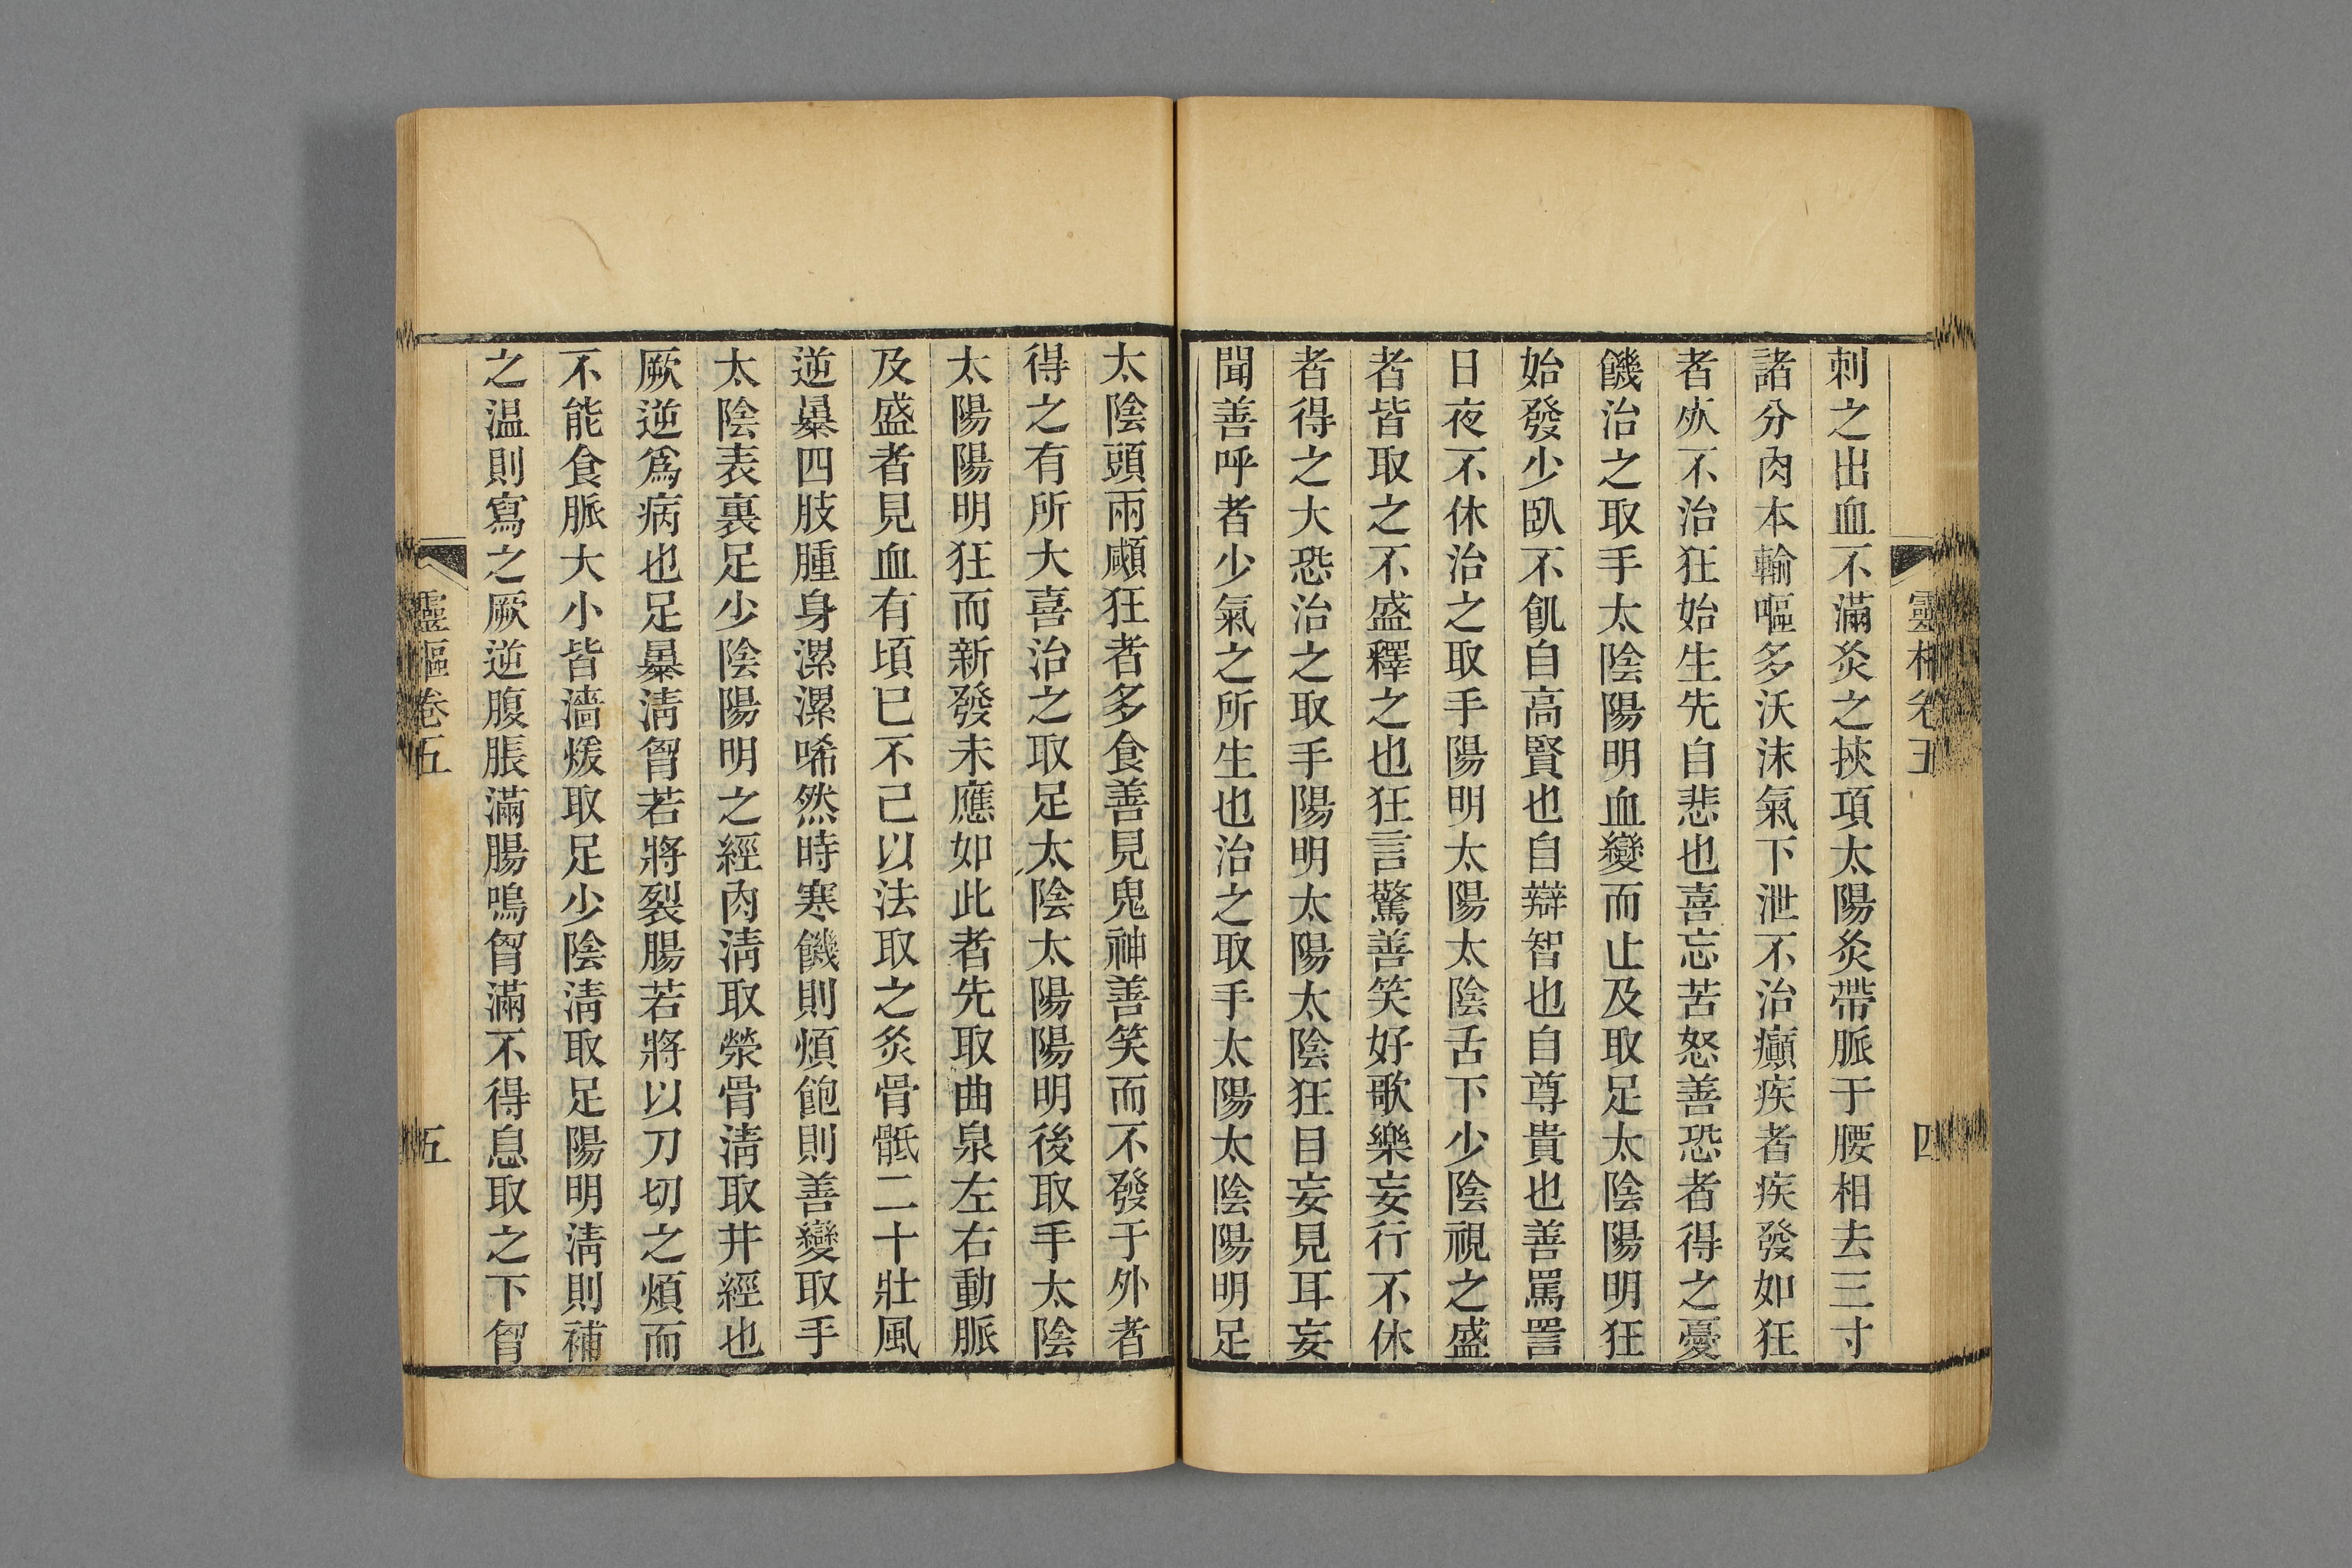 靈樞卷五
四
刺之出血不滿灸之挾項太陽灸帶脈于腰相去三寸
諸分肉本輸嘔多沃沫氣下泄不治癲疾者疾發如狂
者㱙不治狂始生先自悲也喜忘苦怒善恐者得之憂
饑治之取手太陰陽明血變而止及取足太陰陽明狂
始發少臥不飢自高賢也自辯智也自尊貴也善罵詈
日夜不休治之取手陽明太陽太陰舌下少陰視之盛
者皆取之不盛釋之也狂言驚善笑好歌樂妄行不休
者得之大恐治之取手陽明太陽太陰狂目妄見耳妄
聞善呼者少氣之所生也治之取手太陽太陰陽明足
太陰頭兩顑狂者多食善見鬼神善笑而不發于外者
得之有所大喜治之取足太陰太陽陽明後取手太陰
太陽陽明狂而新發未應如此者先取曲泉左右動脈
及盛者見血有頃巳不已以法取之灸骨骶二十壯風
逆暴四肢腫身漯漯唏然時寒饑則煩飽則善變取手
太陰表裏足少陰陽明之經肉淸取滎骨淸取井經也
厥逆爲病也足暴淸胷若將裂腸若將以刀切之煩而
不能食脈大小皆濇煖取足少陰淸取足陽明淸則補
之温則寫之厥逆腹脹滿腸鳴胷滿不得息取之下胷
靈樞卷五
五